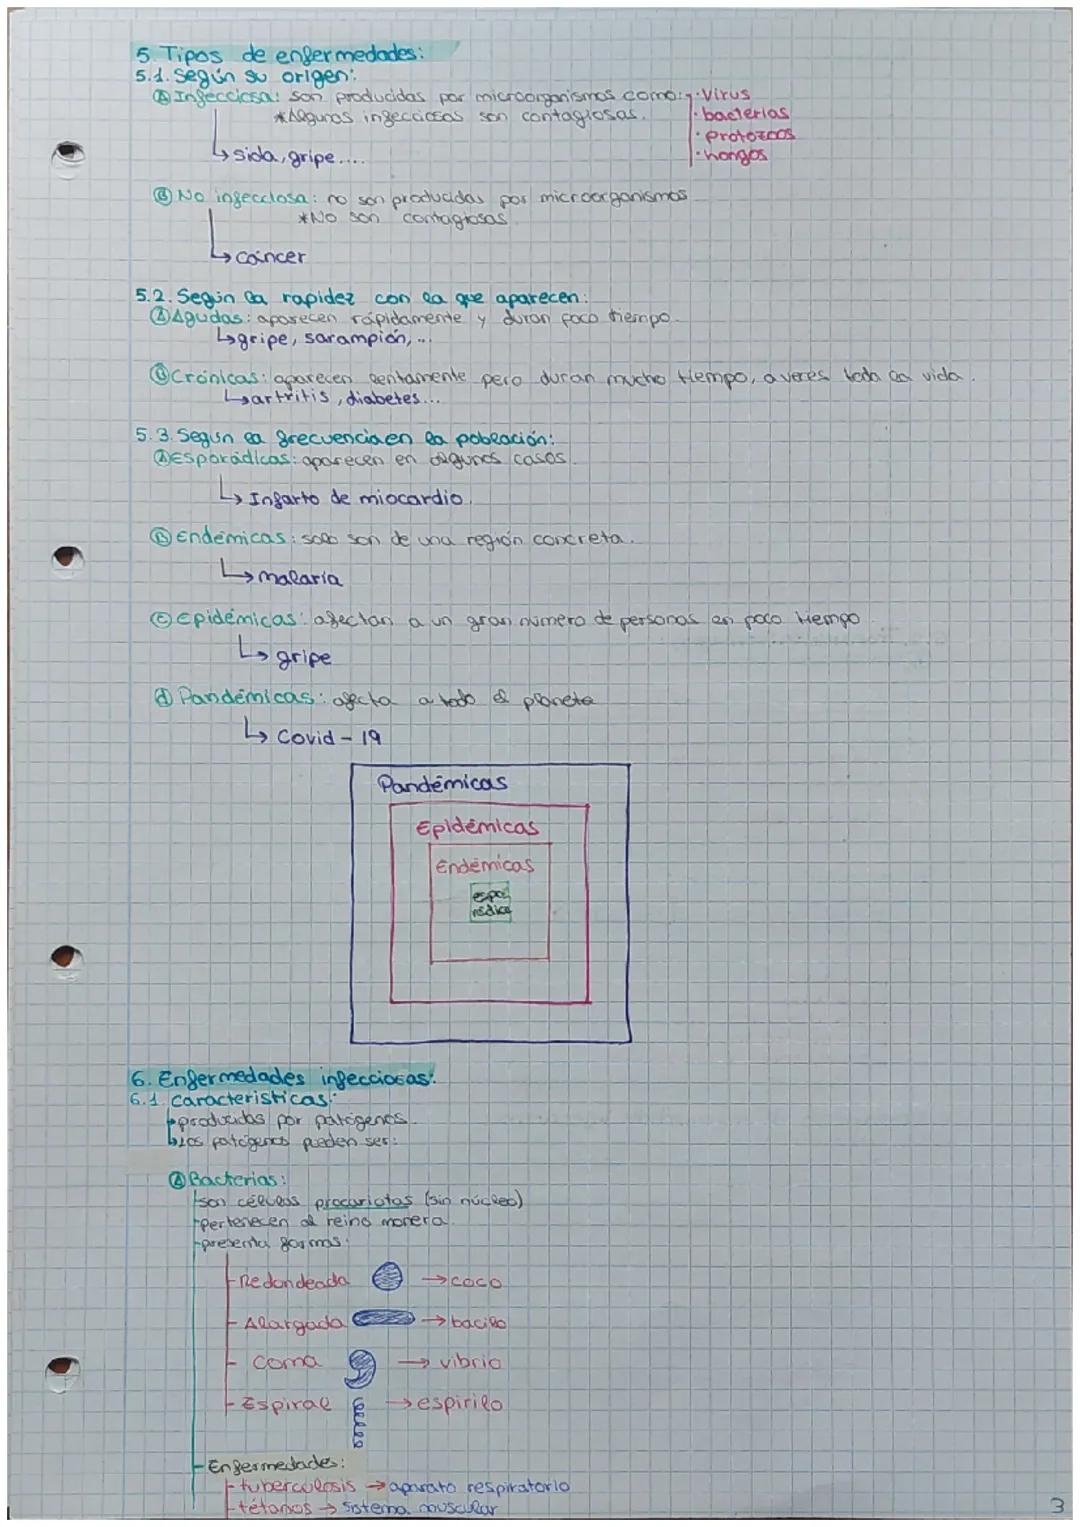 5. Tipos de enfermedades:
5.1. Según su origen:
Ⓐ Infecciosa: son producidas por microorganismos como: · Virus
*Algunas infecciosas son contagiosas. · bacterias
· protozoos
↳ sida, gripe.... · hongos
Ⓑ No infecciosa: no son producidas por microorganismos
*No son contagiosas
↳ cáncer
5.2. Según la rapidez con la que aparecen:
Ⓐ Agudas: aparecen rápidamente y duran poco tiempo.
↳ gripe, sarampión, ...
Ⓑ Crónicas: aparecen lentamente pero duran mucho tiempo, a veces toda la vida.
↳ artritis, diabetes...
5.3. Según la frecuencia en la población:
Ⓐ Esporádicas: aparecen en algunos casos.
↳ Infarto de miocardio.
Ⓑ Endémicas: solo son de una región concreta.
↳ malaria
Ⓒ Epidémicas: afectan a un gran número de personas en poco tiempo
↳ gripe
ⓓ Pandémicas: afecta a todo el planeta
↳ Covid - 19
Pandémicas
Epidémicas
Endémicas
espo
rádica
6. Enfermedades infecciosas:
6.1 Características:
producidas por patógenos.
los patógenos pueden ser:
Ⓐ Bacterias:
son células procariotas (sin núcleo)
pertenecen al reino monera.
presenta formas:
Redondeada → coco
Alargada → bacilo
coma → vibrio
Espiral → espirilo
Enfermedades:
tuberculosis → aparato respiratorio
tétanos → sistema muscular
3